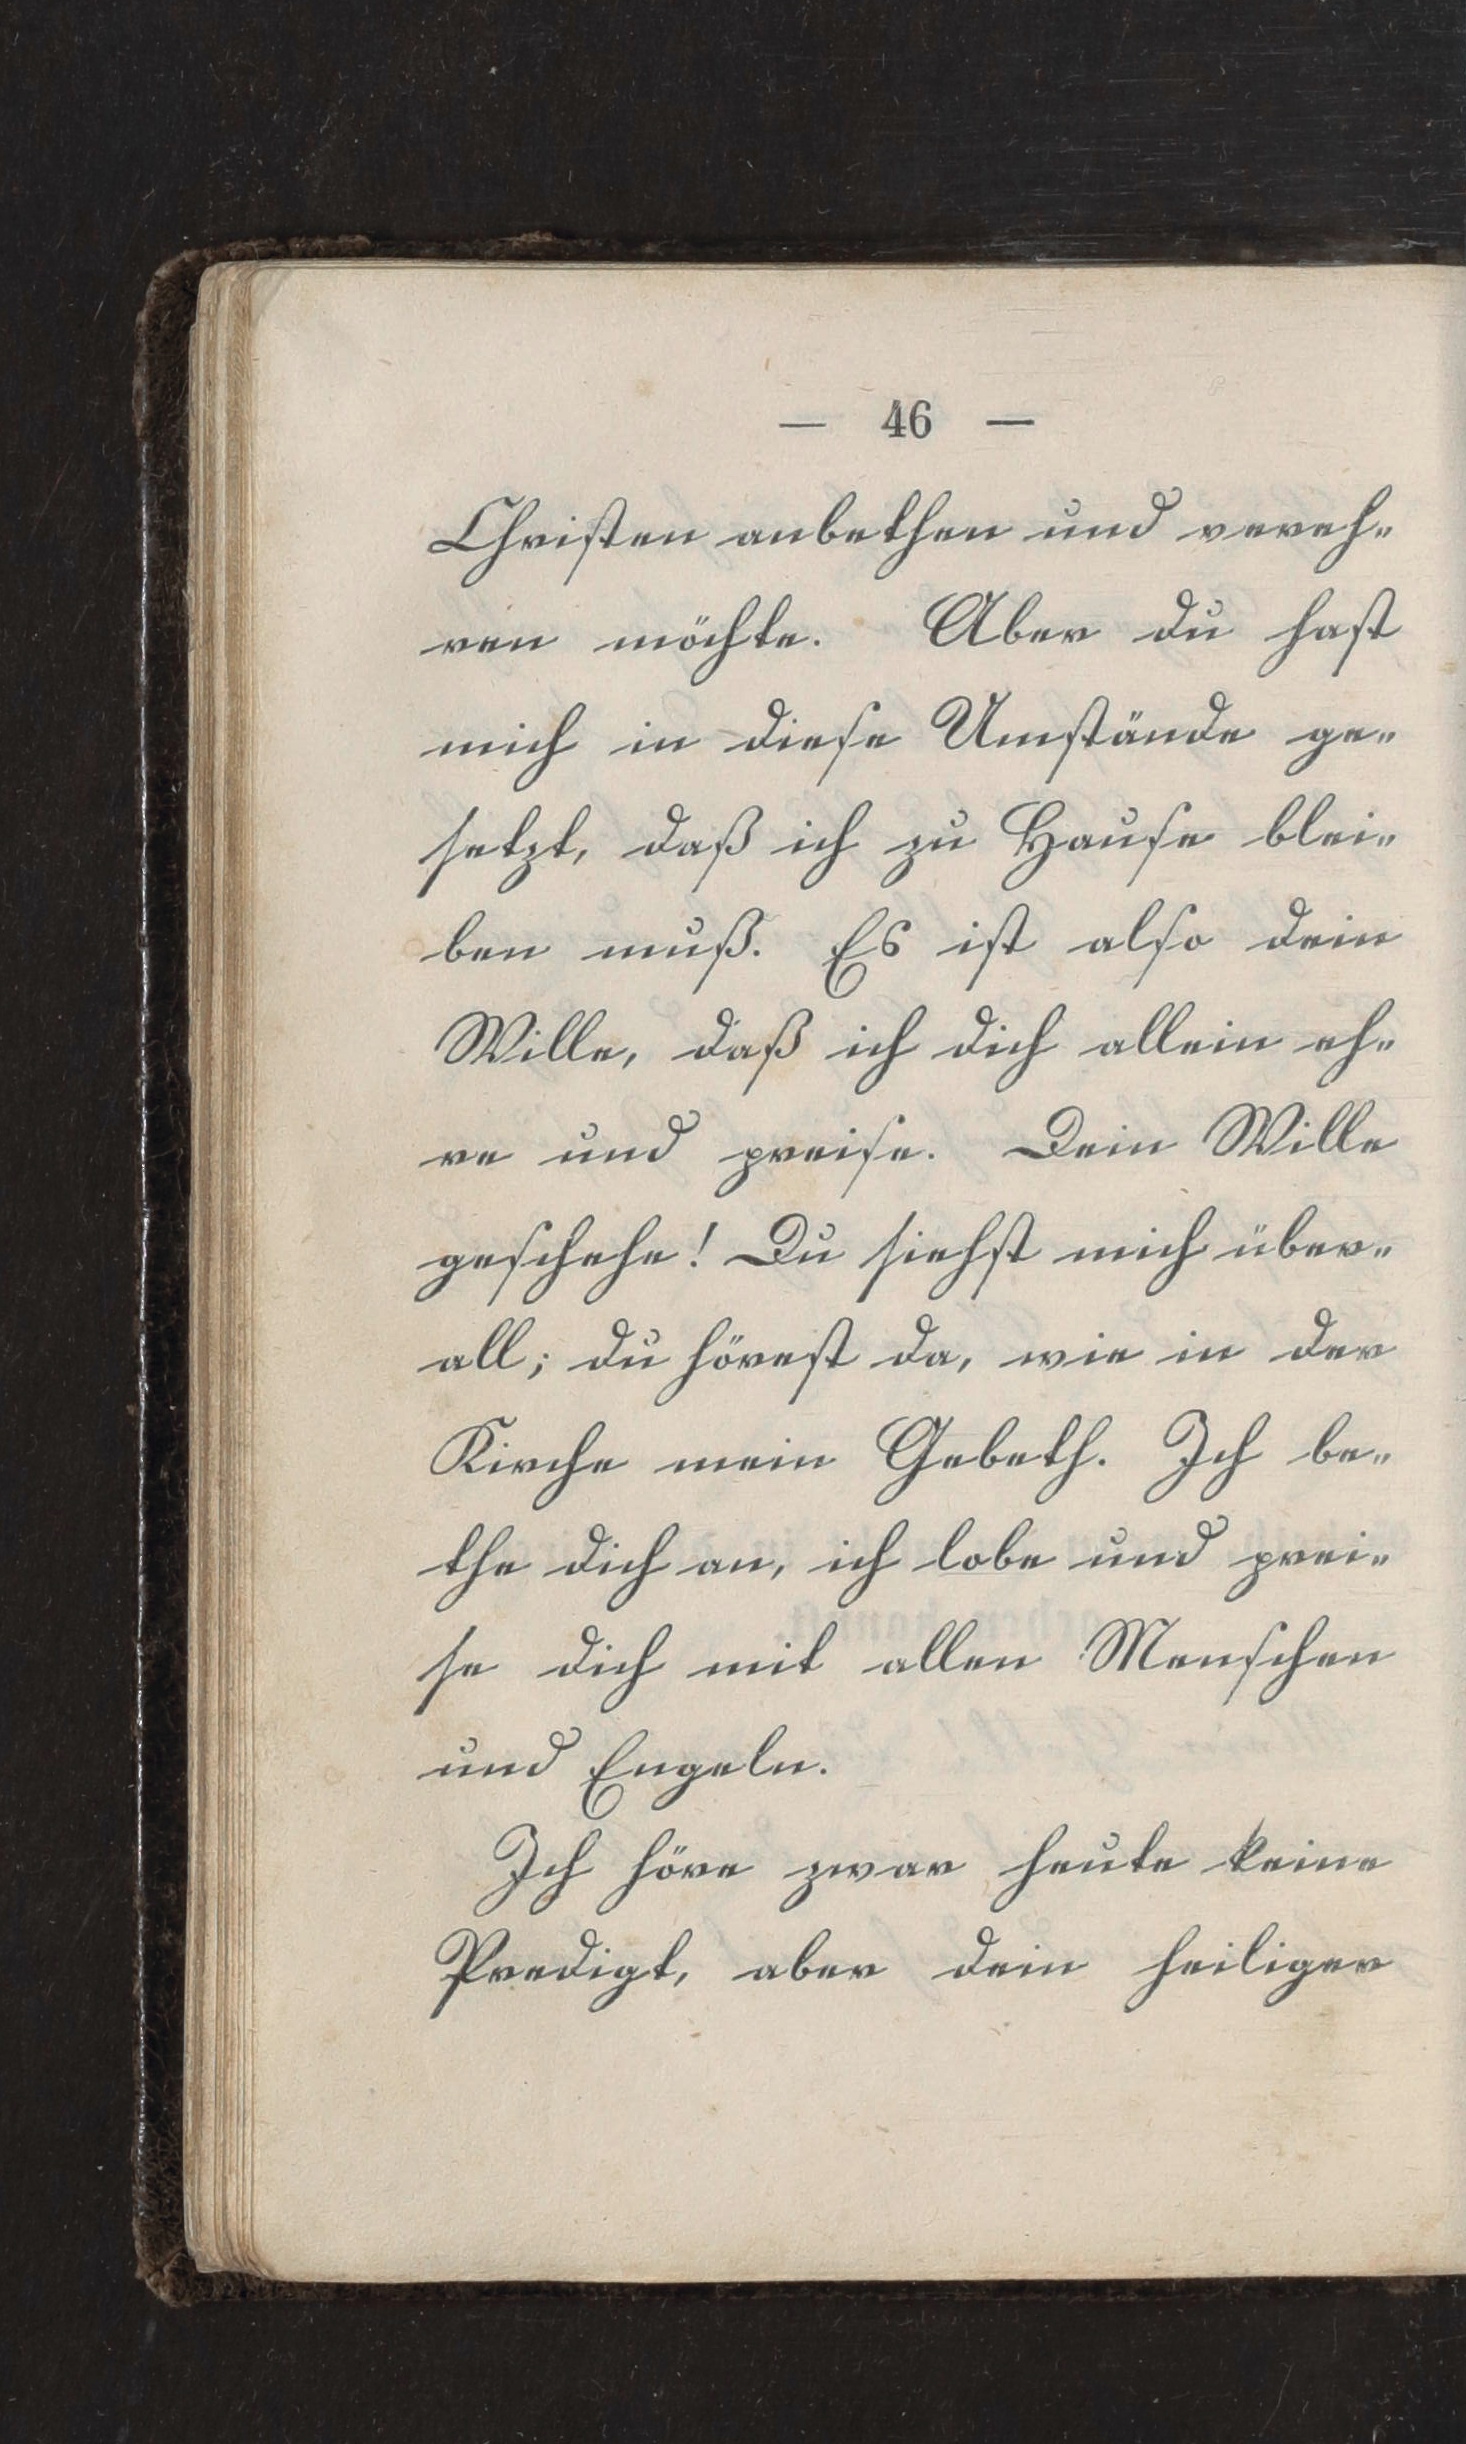 — 46 —
Christen anbethen und vereh-
ren möchte. Aber du hast
mich in diese Umstände ge-
setzt, daß ich zu Hause blei-
ben muß. Es ist also dein
Wille, daß ich dich allein eh-
re und preise. Dein Wille
geschehe! Du siehst mich über-
all; du hörest da, wie in der
Kirche mein Gebeth. Ich be-
the dich an, ich lobe und prei-
se dich mit allen Menschen
und Engeln.
Ich höre zwar heute keine
Predigt, aber dein heiliger